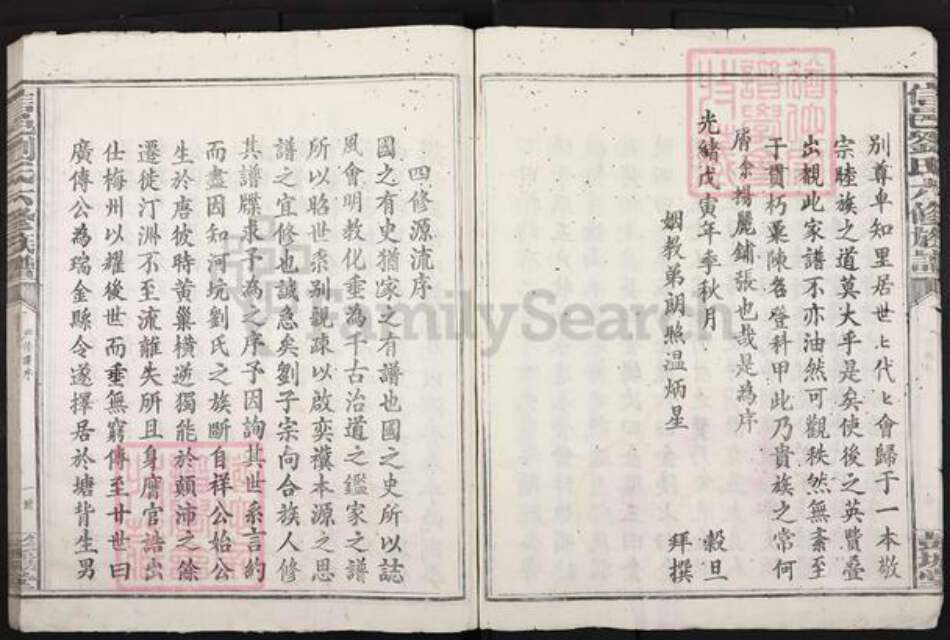 別尊卑知里居世ヒ代ヒ會歸于一本敬
宗睦族之道莫大乎是矣使後之英賢疊
出覩此家譜不亦油然可觀秩然無紊至
于貫朽粟陳名登科甲此乃貴族之常何
屑余揚麗鋪張也哉是為序
光緒戊寅年季秋月 穀旦
姻教弟朗照温炳星 拜撰
四修源流序
國之有史猶家之有譜也國之史所以誌
風會明教化垂為千古治道之鑑家之譜
所以昭世系別親疎以啟奕禩本源之思
譜之宜修也誠急矣劉子宗向合族人修
其譜牒求予為之序予因詢其世系言約
而盡因知河坑劉氏之族斷自祥公始公
生於唐彼時黄巢橫逆獨能於顛沛之餘
遷徙汀洲不至流離失所且身膺官誥出
仕梅州以耀後世而垂無窮傳至廿世曰
廣傳公為瑞金縣令遂擇居於塘背生男
信邑劉氏六修族譜
FamilySearch